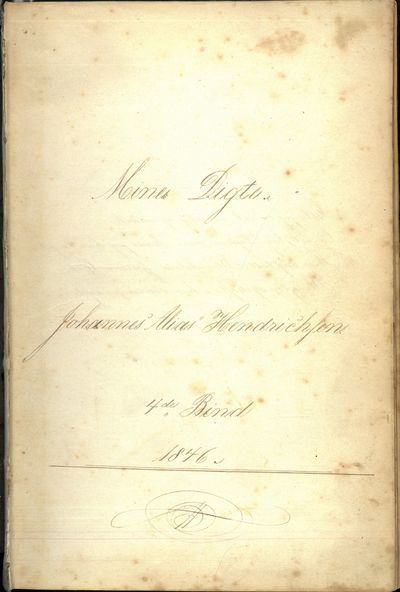 Mine Digte.
Johannes Alias Hendrichsen
4de Bind
1846.